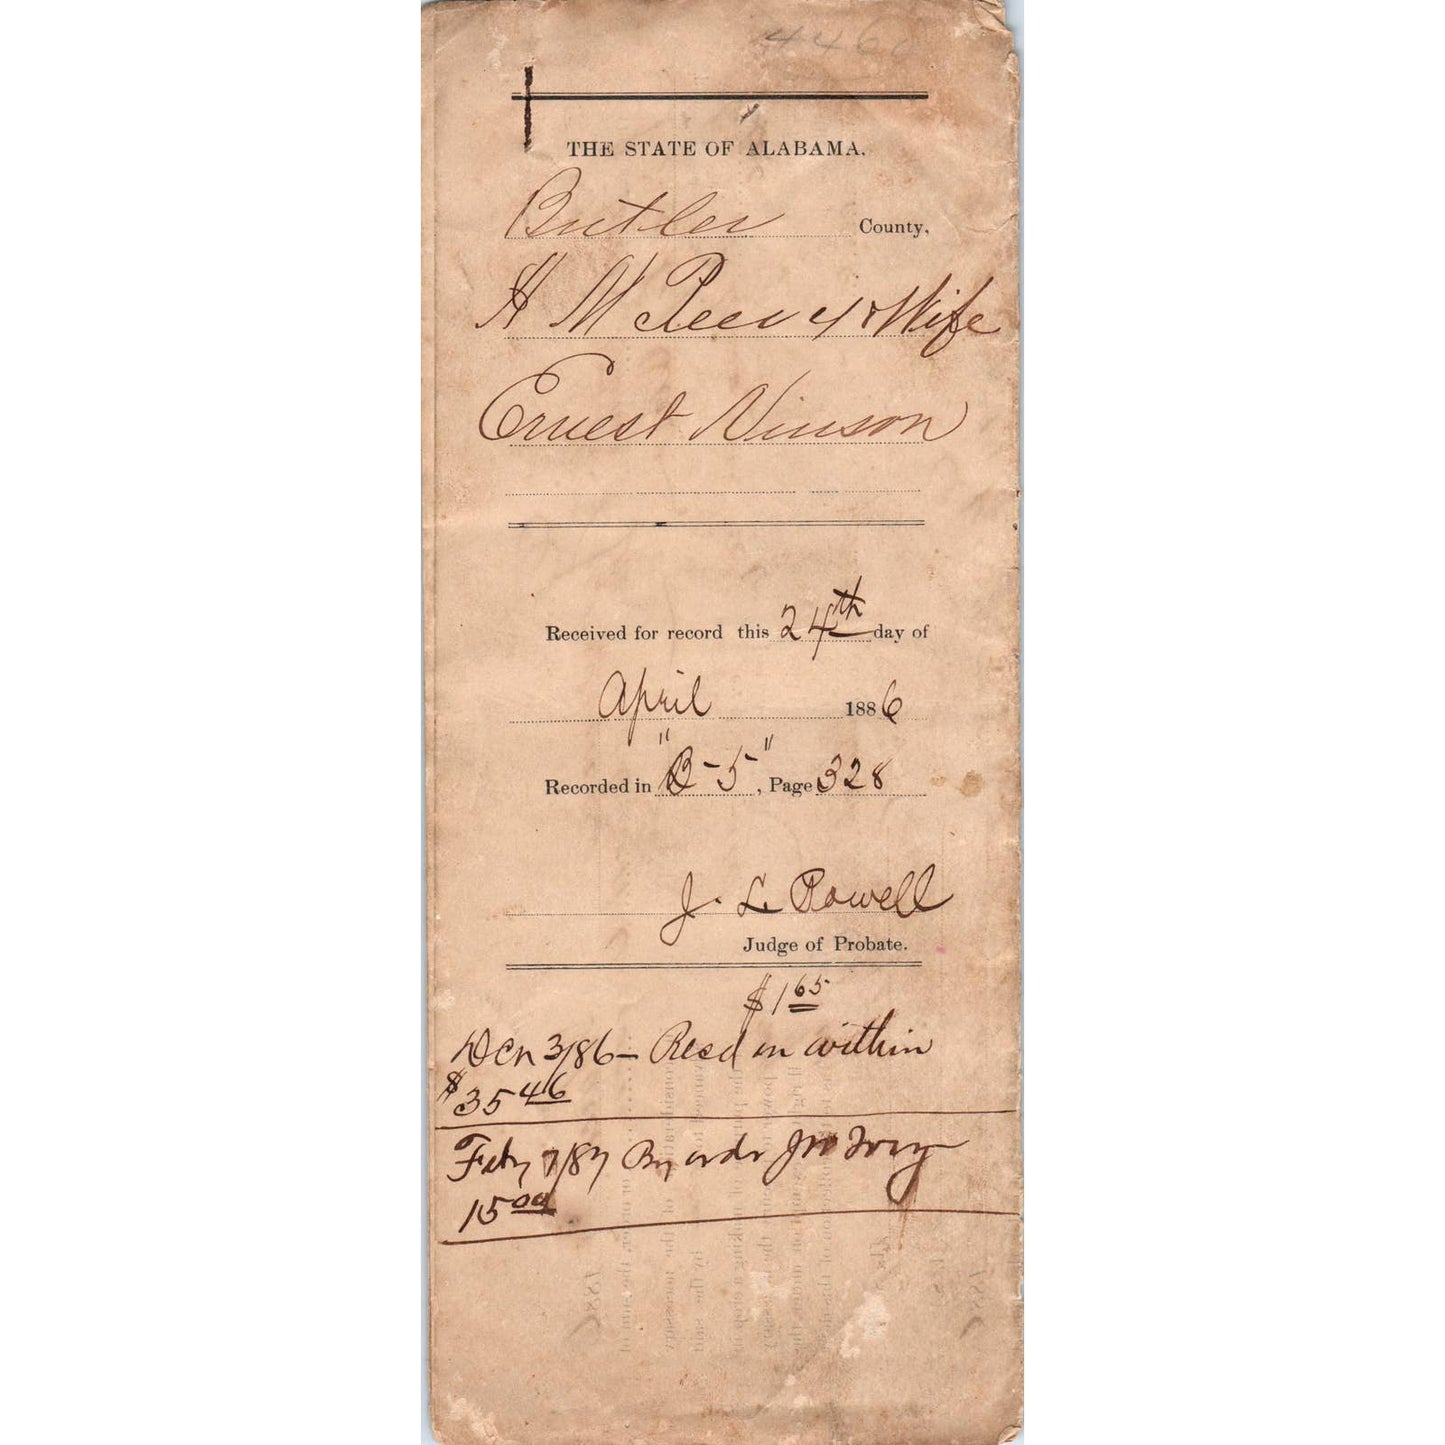 446
THE STATE OF ALABAMA.
Butler County,
H M & Wife
Ernest Vinson
Received for record this 24th day of
April 1886
Recorded in "B-5", Page 328
J. L. Powell
Judge of Probate.
$1 65
Dcn 3/86 – Recd on within
$35 46
Feby 7/87 By ordr Jno
15 00